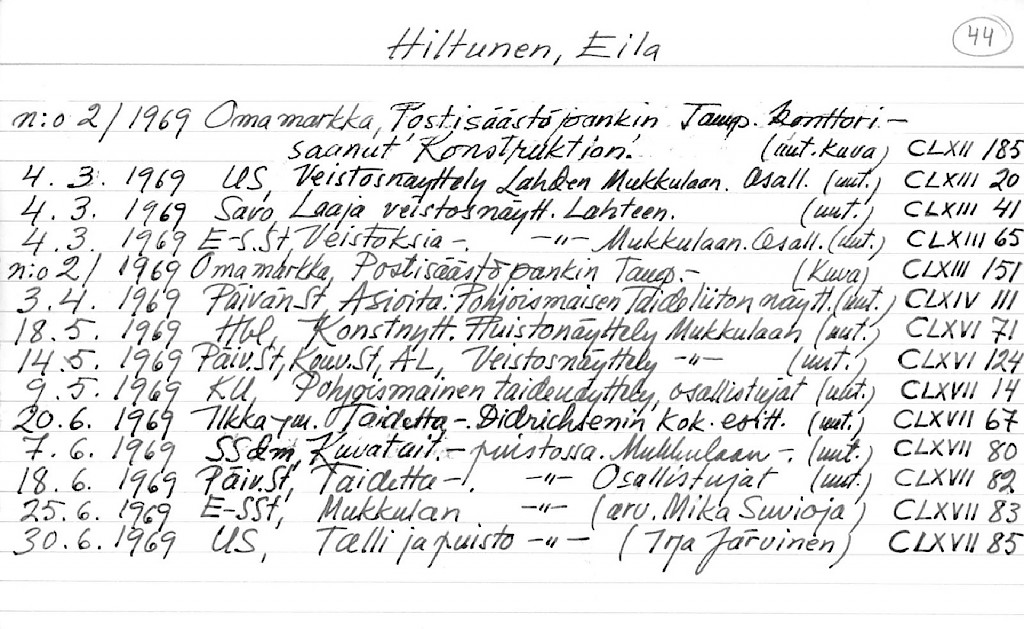 Hiltunen, Eila 44
n:o 2/1969 Omamarkka, Postisäästöpankin Tamp. konttori -
saanut Konstruktion. (uut. kuva) CLXII 185
4. 3. 1969 US, Veistosnäyttely Lahden Mukkulaan. Osall. (uut.) CLXIII 20
4. 3. 1969 Savo Laaja veistosnäytt. Lahteen. (uut.) CLXIII 41
4.3. 1969 E-S.St Veistoksia -. -"- Mukkulaan. Osall. (uut.) CLXIII 65
n:o 2/ 1969 Omamarkka, Postisäästöpankin Tamp. - (Kuva) CLXIII 151
3.4. 1969 Päivän St, Asioita. Pohjoismaisen Taideliiton näytt. (uut.) CLXIV 111
18.5. 1969 Hbl, Konstnytt. Puistonäyttely Mukkulaan (uut.) CLXVI 71
14.5. 1969 Päiv.St, Kouv.St, AL, Veistosnäyttely -"- (uut.) CLXVI 124
9.5. 1969 KU, Pohjoismainen taidenäyttely, osallistujat (uut.) CLXVII 14
20.6. 1969 Ilkka ym. Taidetta -. Didrichsenin kok. esitt. (uut.) CLXVII 67
7. 6. 1969 SSdm, Kuvatait. - puistossa. Mukkulaan -. (uut.) CLXVII 80
18.6. 1969 Päiv.St, Taidetta -. -"- Osallistujat (uut.) CLXVII 82
25.6. 1969 E-SSt, Mukkulan -"- (arv. Mika Suvioja) CLXVII 83
30.6. 1969 US, Talli ja puisto -"- (Irja Järvinen) CLXVII 85